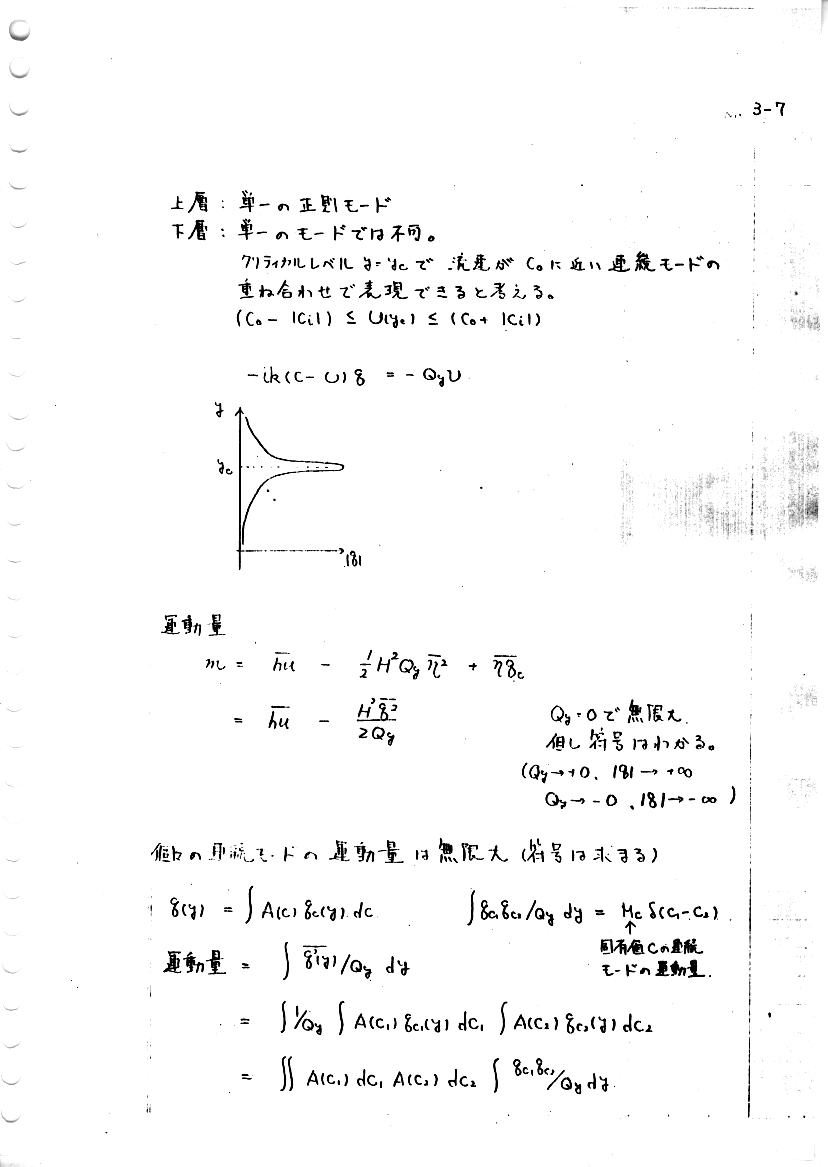 No. 3-7
上層 : 単一の正則モード
下層 : 単一のモードでは不可。
クリティカルレベル y=ycで 流速が Coに近い連続モードの
重ね合わせで表現できると考える。
(Co - |Ci|) ≤ U(yc) ≤ (Co + |Ci|)
-ik(C - U) q = - QyU
y
yc
|q|
運動量
m = \overline{hu} - 1/2 H²Qy \overline{η²} + \overline{ηq}c
= \overline{hu} - H³\overline{q²}/2Qy
Qy=0で無限大
但し符号はわかる。
(Qy→+0、|q|→+∞
Qy→-0、|q|→-∞)
個々の連続モードの運動量は無限大(符号は求まる)
q(y) = ∫A(c) qc(y) dc ∫qc1qc2/Qy dy = Mc δ(C1-C2)
↑
固有値Cの連続
モードの運動量.
運動量 = ∫ \overline{q²(y)}/Qy dy
= ∫1/Qy ∫A(C1) qc1(y) dC1 ∫A(C2) qc2(y) dC2
= ∬ A(C1) dC1 A(C2) dC2 ∫ qc1qc2/Qy dy